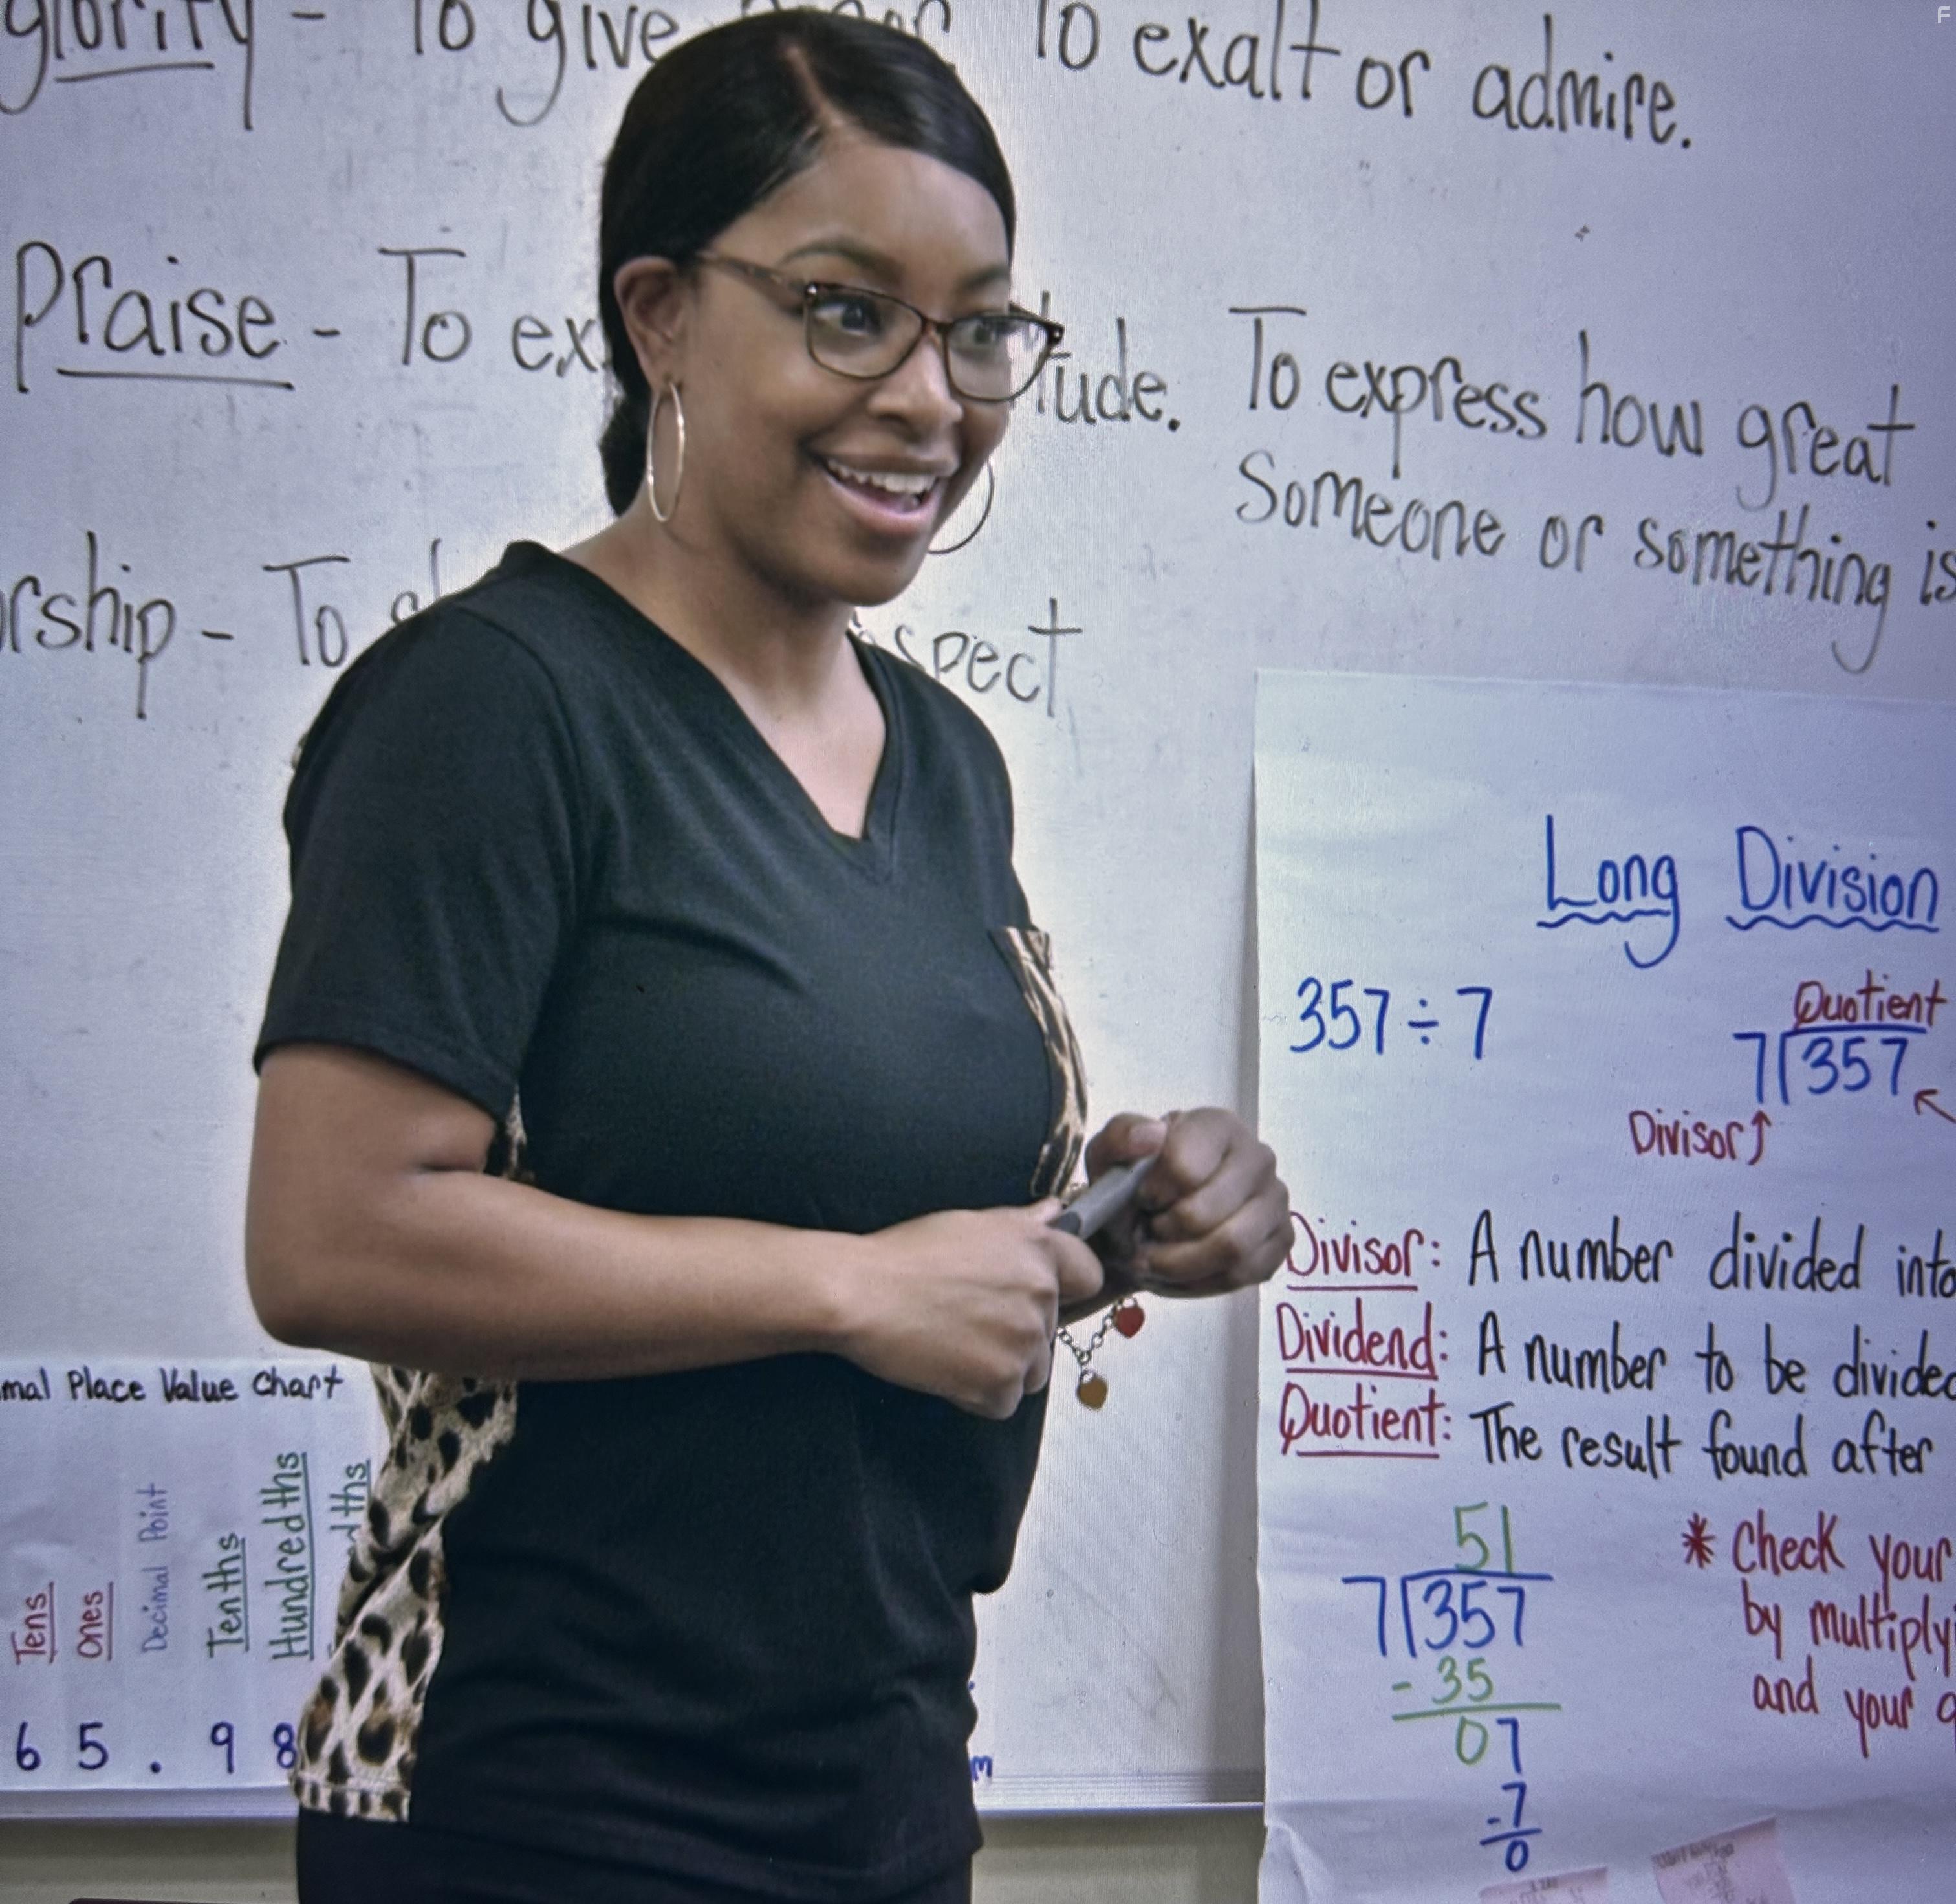 glorify - To give To exalt or admire.
Praise - To ex tude. To express how great
Someone or something is
rship - To spect
Long Division
357 ÷ 7
Quotient
7 357
Divisor↑
Divisor: A number divided into
Dividend: A number to be divided
Quotient: The result found after
51
7 357
- 35
07
-7
0
* Check your
by multiplyi
and your q
mal Place Value Chart
Tens
Ones
Decimal Point
Tenths
Hundredths
dths
6 5 . 9 8
m
F